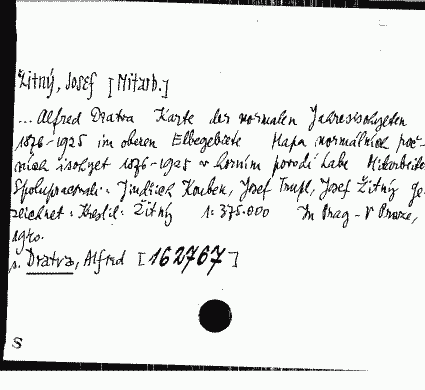 Žitný, Josef [Mitarb.]
... Alfred Dratva Karte der normalen Jahresisohyeten
1876-1925 im oberen Elbegebiete Mapa normálních roč-
ních isohyet 1876-1925 v horním povodí Labe Mitarbeiter
Spolupracovali: Jindřich Kouben, Josef Trupl, Josef Žitný Ge-
zeichnet: Kreslil: Žitný 1:375.000 In Prag - V Praze,
s. Dratva, Alfred [162767]
S